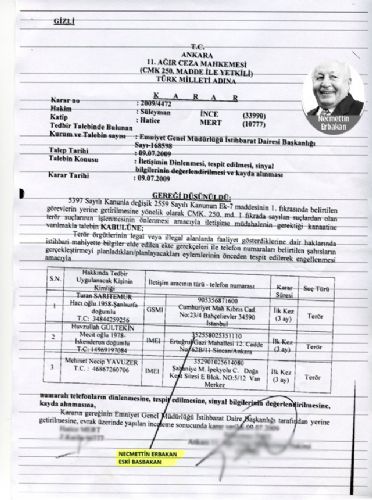 GİZLİ
T.C.
ANKARA
11. AĞIR CEZA MAHKEMESİ
(CMK 250. MADDE İLE YETKİLİ)
TÜRK MİLLETİ ADINA
K A R A R
Karar no : 2009/4472
Hakim : Süleyman İNCE (33990)
Katip : Hatice MERT (10777)
Necmettin
Erbakan
Tedbir Talebinde Bulunan
Kurum ve Talebin sayısı : Emniyet Genel Müdürlüğü İstihbarat Dairesi Başkanlığı
Sayı-168598
Talep Tarihi : 09.07.2009
Talebin Konusu : İletişimin Dinlenmesi, tespit edilmesi, sinyal
bilgilerinin değerlendirilmesi ve kayda alınması
Karar Tarihi : 09.07.2009
GEREĞİ DÜŞÜNÜLDÜ:
5397 Sayılı Kanunla değişik 2559 Sayılı Kanunun Ek-7 maddesinin 1. fıkrasında belirtilen
görevlerin yerine getirilmesine yönelik olarak CMK. 250. md. 1 fıkrada sayılan suçlardan olan
terör suçlarının işlenmesinin önlenmesi amacıyla iletişime müdahalenin gerektiği kanaatine
varılmakla talebin KABULÜNE;
Terör örgütlerinin legal veya illegal alanlarda faaliyet gösterdiklerine dair haklarında
istihbari mahiyette bilgiler elde edilen ekte gerekçeleri ile telefon numaraları belirtilen şahısların
gerçekleştirmeyi planladıkları/planlayacakları eylemlerinin önceden tespit edilerek engellenmesi
amacıyla
S.N. Hakkında Tedbir Uygulanacak Kişinin Kimliği İletişim aracının türü - telefon numarası Karar Süresi Suç Türü
1 Turan SARITEMUR Hacı oğlu 1958-Şanlıurfa doğumlu T.C: 34844259256 GSM 905356871600 Cumhuriyet Mah Kıbrıs Cad. No:23/4 Bahçelievler 34590 İstanbul İlk Kez (3 ay) Terör
2 GÜLTEKİN Mecit oğlu 1978-İskenderun doğumlu T.C: 14569197084 IMEI 352558025351110 Ertuğrul Gazi Mahallesi 12. Cadde No:62B/11 Sincan/Ankara İlk Kez (3 ay) Terör
3 Mehmet Necip YAVUZER T.C.: 46867260706 IMEI 352901025614080 M. İpekyolu C. Doğa Kent Sitesi E Blok. NO:5/12 Van Merkez İlk Kez (3 ay) Terör
numaralı telefonların dinlenmesine, tespit edilmesine, sinyal bilgilerinin değerlendirilmesine,
kayda alınmasına,
Kararın gereğinin Emniyet Genel Müdürlüğü İstihbarat Daire Başkanlığı tarafından yerine
getirilmesine, evrak üzerinde yapılan inceleme sonucunda karar
NECMETTİN ERBAKAN
ESKİ BAŞBAKAN